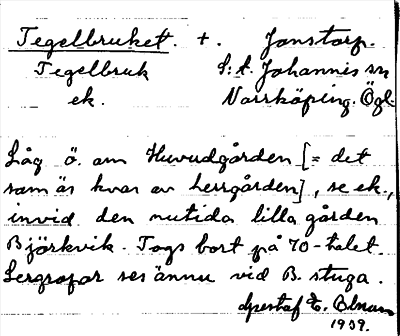 Tegelbruket. +. Janstorp.
Tegelbruk S:t. Johannis sn
ek. Norrköping. Ögl.
Låg ö. om Huvudgården [= det
som är kvar av herrgården], se ek.,
invid den nutida lilla gården
Björkvik. Togs bort på 70-talet.
Lergropar ses ännu vid B. stuga.
1939.